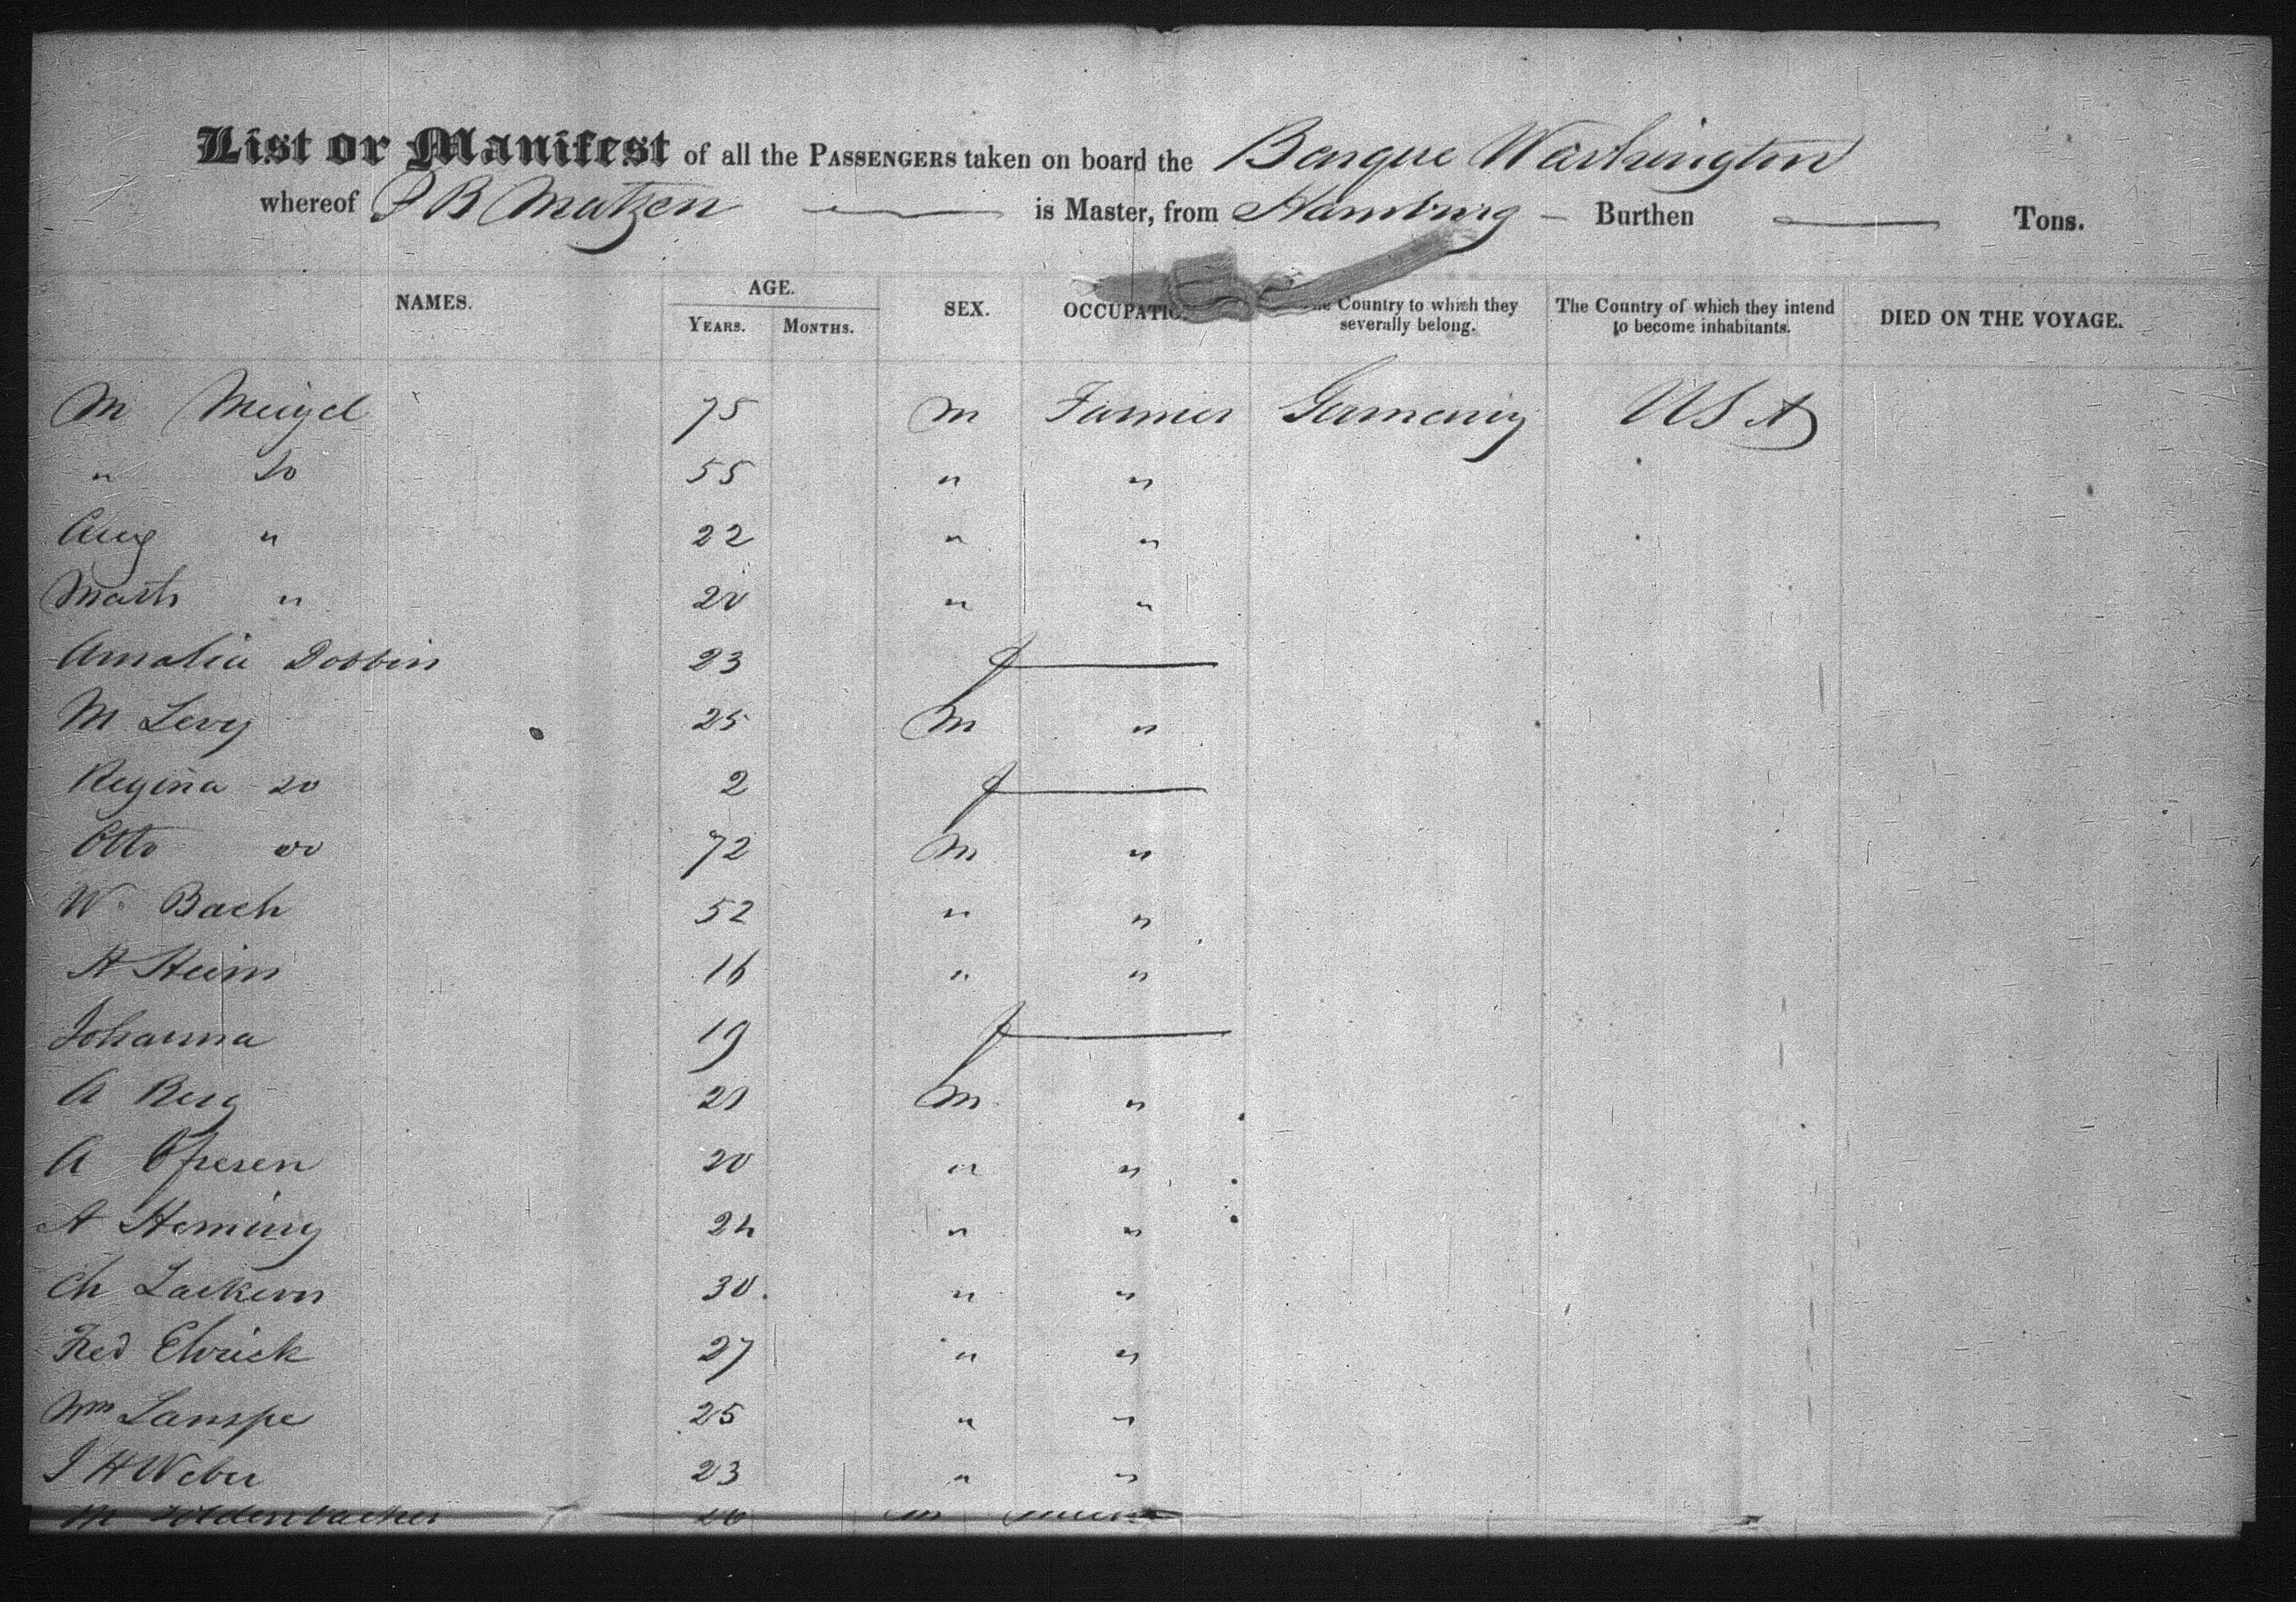 List or Manifest of all the PASSENGERS taken on board the Barque Washington
whereof P B Matzen is Master, from Hamburg — Burthen — Tons.
NAMES. AGE. SEX. OCCUPATIO Country to which they severally belong. The Country of which they intend to become inhabitants. DIED ON THE VOYAGE.
YEARS. MONTHS.
M Meigel 75 M Farmer Germany USA
" Do 55 " "
Aug " 22 " "
Math " 20 " "
Amalia Dobbin 23 f —
M Levy 25 M "
Regina do 2 f —
Otto do 72 M "
W. Bach 52 " "
A Heim 16 " "
Johanna 19 f —
A Berg 21 M "
A 20 " "
A Heming 24 " "
Ch 30. " "
Fred Elvrick 27 " "
Wm Lanspe 25 " "
J H Weber 23 " "
M 26 M